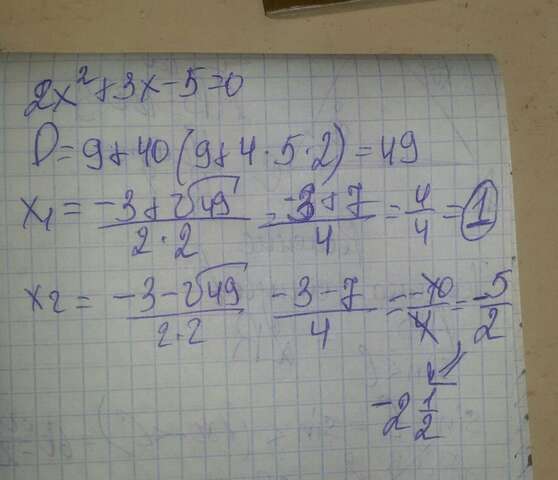 2x² + 3x - 5 = 0
D = 9 + 40 (9 + 4 · 5 · 2) = 49
x₁ = (-3 + √49)/(2 · 2) = (-3 + 7)/4 = 4/4 = 1
x₂ = (-3 - √49)/(2·2) (-3 - 7)/4 = -10/4 = -5/2
-2 1/2